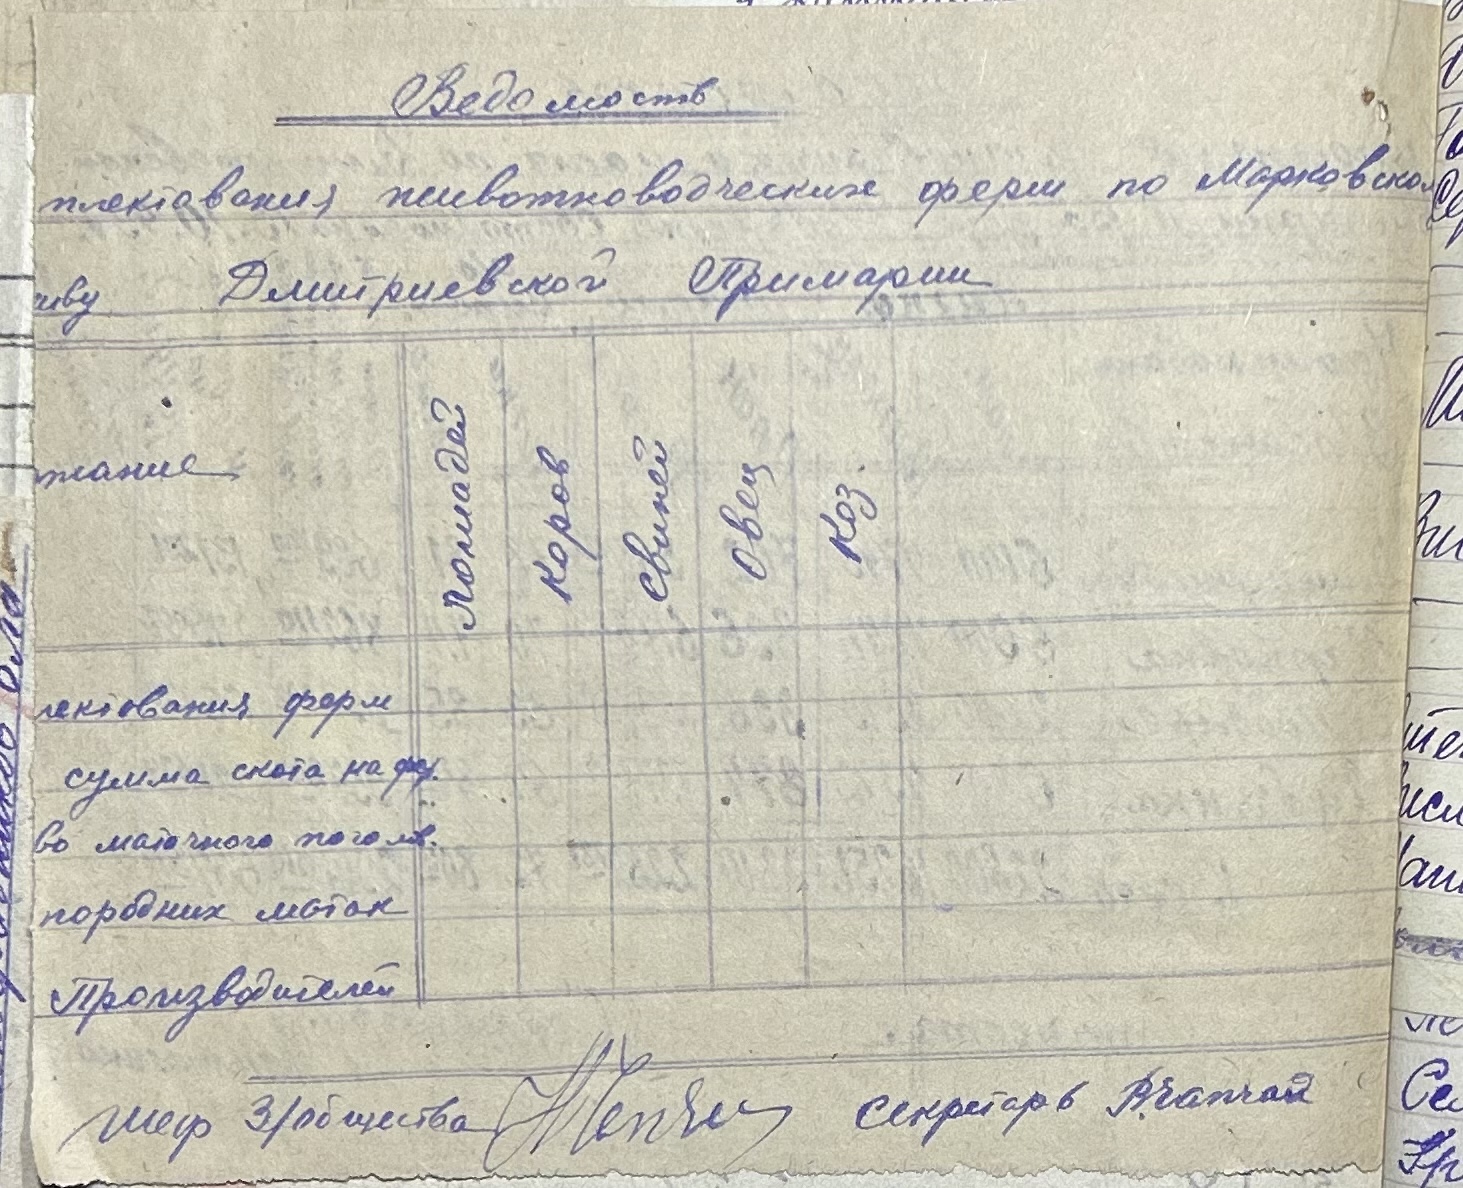 Ведомость
плектования животноводческих ферм по Марковско
иву Дмитриевской Примарии
жание
лошадей
коров
свиней
овец
коз.
лектования ферм
сумма скота на фер.
во маточного поголов.
породних маток
Производителей
шеф З/общества
секретарь